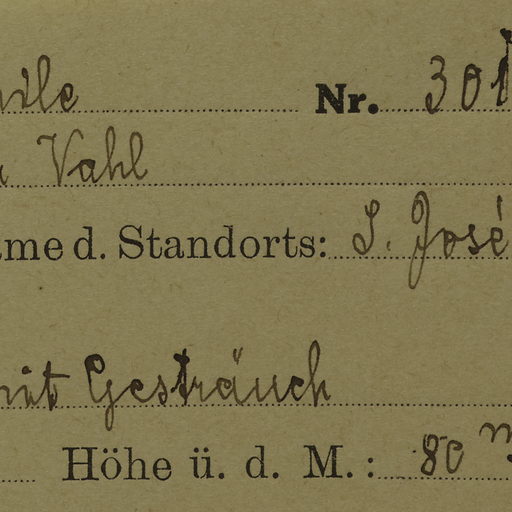 Nr. 301
Vahl
me d. Standorts: S. José
mit Gesträuch
Höhe ü. d. M.: 80 m